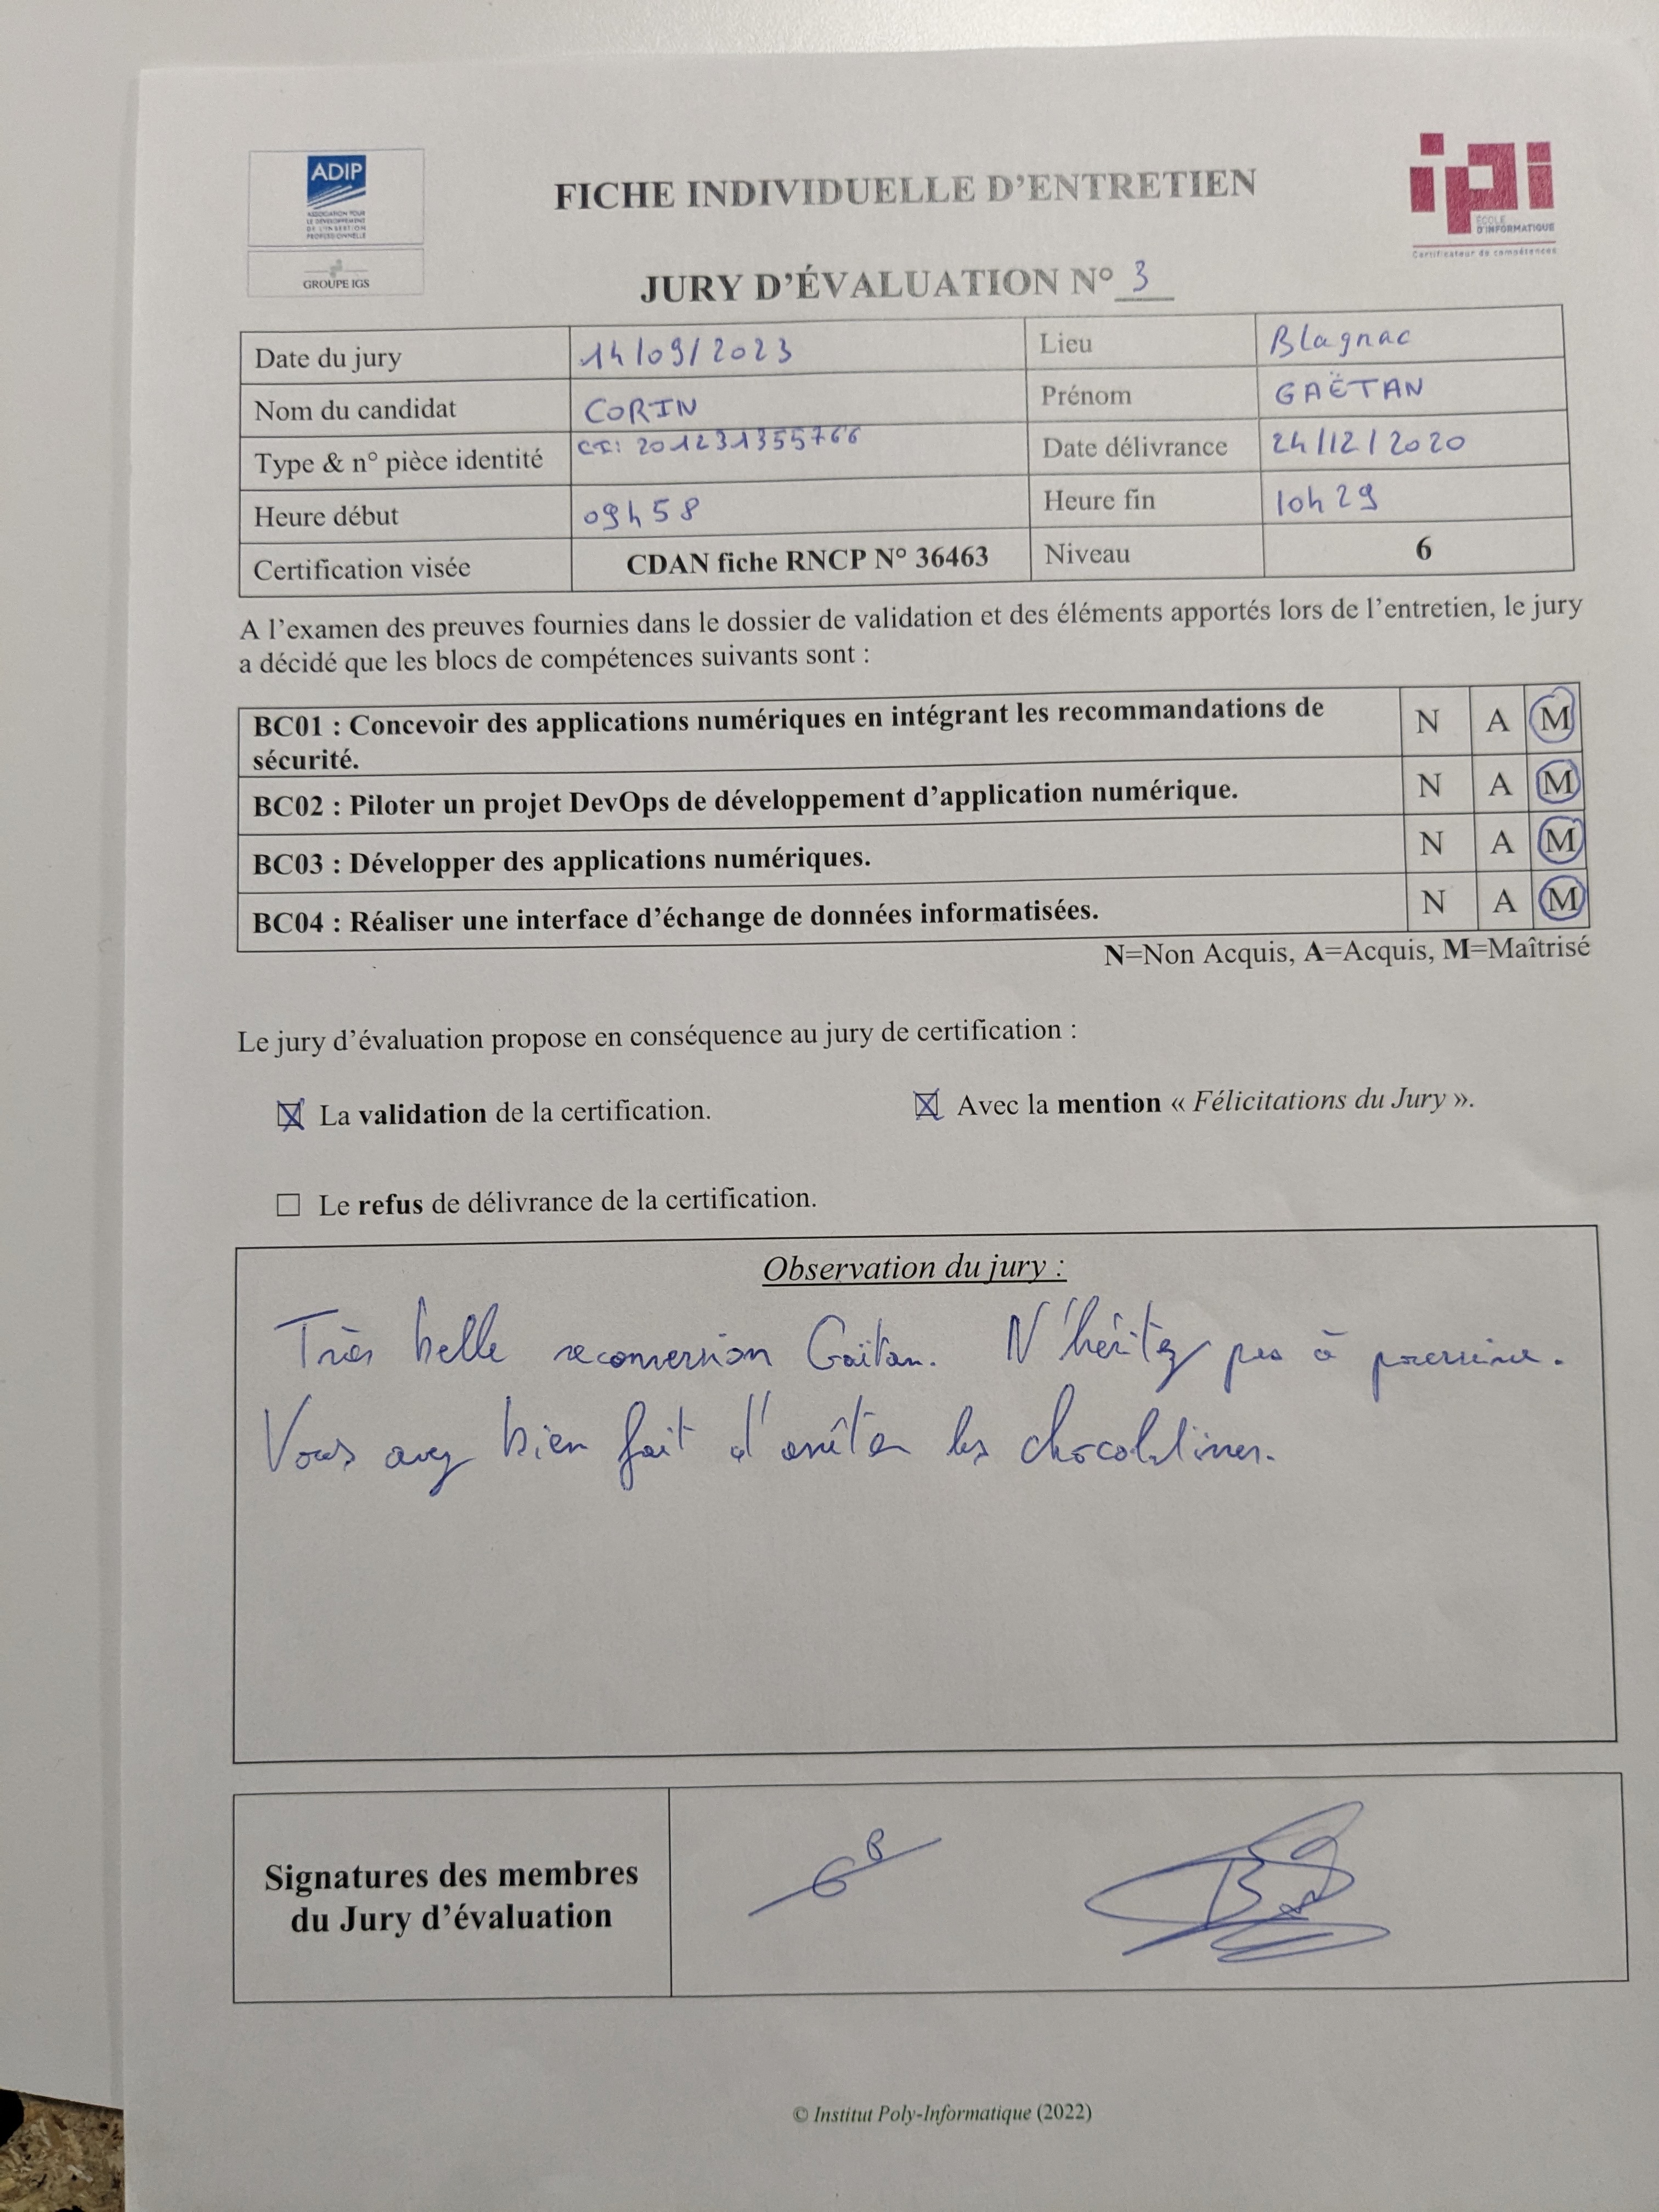 ADIP
ASSOCIATION POUR
LE DÉVELOPPEMENT
DE L'INSERTION
PROFESSIONNELLE
GROUPE IGS
FICHE INDIVIDUELLE D'ENTRETIEN
JURY D'ÉVALUATION N° 3
ipi
ÉCOLE
D'INFORMATIQUE
Certificateur de compétences
Date du jury 14/09/2023 Lieu Blagnac
Nom du candidat CORIN Prénom GAËTAN
Type & n° pièce identité CI: 201231355766 Date délivrance 24/12/2020
Heure début 09h58 Heure fin 10h29
Certification visée CDAN fiche RNCP N° 36463 Niveau 6
A l'examen des preuves fournies dans le dossier de validation et des éléments apportés lors de l'entretien, le jury
a décidé que les blocs de compétences suivants sont :
BC01 : Concevoir des applications numériques en intégrant les recommandations de
sécurité. N A M
BC02 : Piloter un projet DevOps de développement d'application numérique. N A M
BC03 : Développer des applications numériques. N A M
BC04 : Réaliser une interface d'échange de données informatisées. N A M
N=Non Acquis, A=Acquis, M=Maîtrisé
Le jury d'évaluation propose en conséquence au jury de certification :
☒ La validation de la certification. ☒ Avec la mention « Félicitations du Jury ».
☐ Le refus de délivrance de la certification.
Observation du jury :
Très belle reconversion Gaëtan. N'hésitez pas à poursuivre.
Vous avez bien fait d'arrêter les chocolatines.
Signatures des membres
du Jury d'évaluation
© Institut Poly-Informatique (2022)